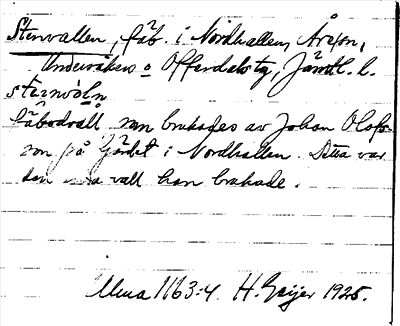 Stenvallen, fäb. i Nordhallen, Åresn,
Undersåkers o Offerdals tg, Jämtl. l.
stɛ̄nvòḷn
fäbodvall som brukades av Johan Olofs-
son på Gärdet i Nordhallen. Detta var
den vall han brukade.
Ulma 1163:4. H. Geijer 1925.